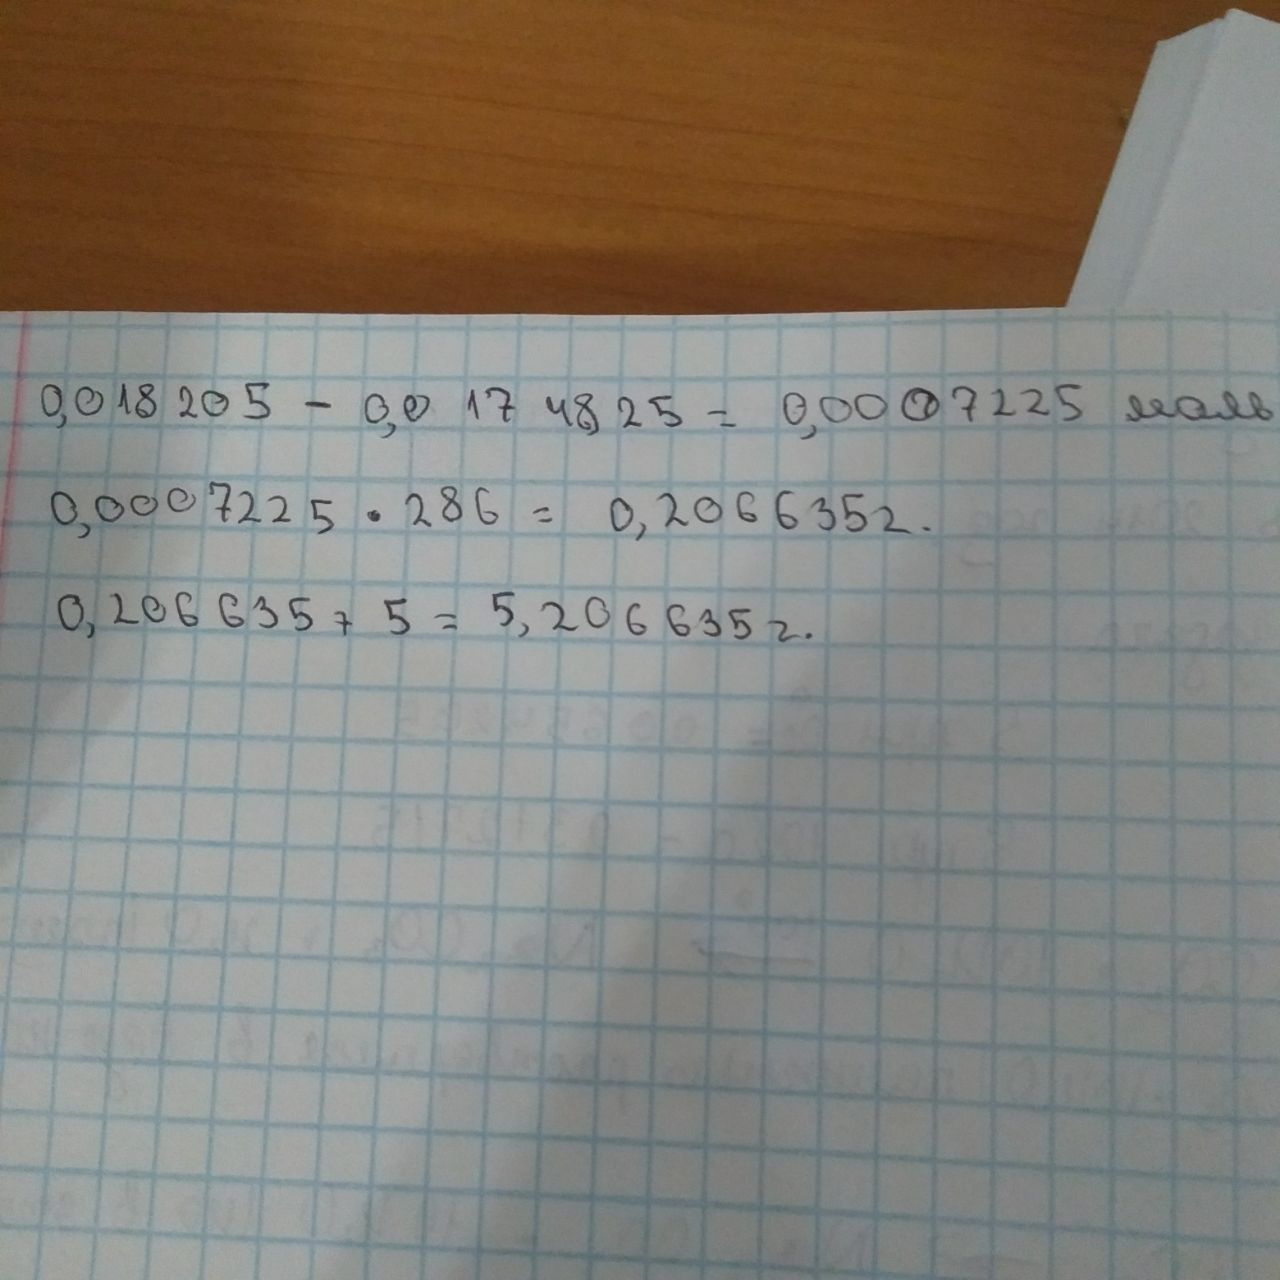 0,018205 - 0,0174825 = 0,0007225 моль
0,0007225 · 286 = 0,206635г.
0,206635 + 5 = 5,206635г.